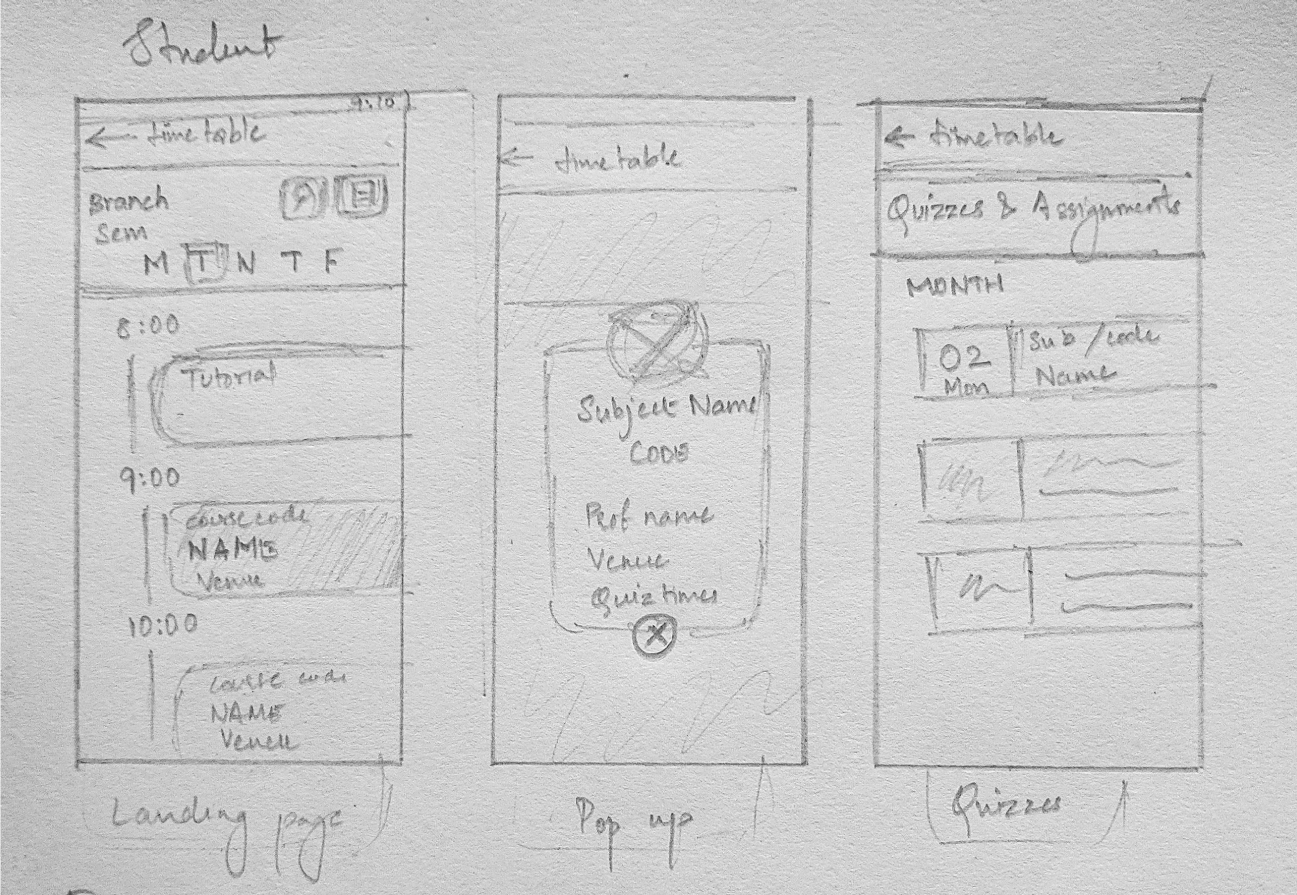 Student
9:10
← timetable
Branch
Sem
M T N T F
8:00
Tutorial
9:00
course code
NAME
Venue
10:00
course code
NAME
Venue
Landing page
← timetable
Subject Name
CODE
Prof name
Venue
Quiz times
X
Pop up
← timetable
Quizzes & Assignments
MONTH
02
Mon
Sub / code
Name
Quizzes